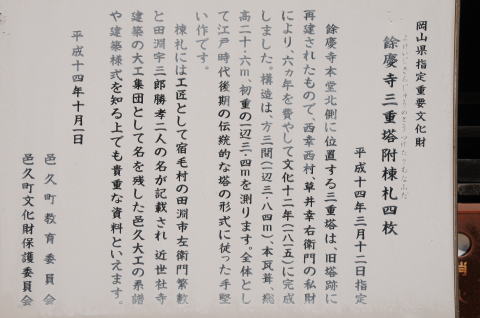 岡山県指定重要文化財
餘慶寺三重塔附棟札四枚
平成十四年三月十二日指定
餘慶寺本堂北側に位置する三重塔は、旧塔跡に
再建されたもので、西幸西村、草井幸右衛門の私財
により、六ヵ年を費やして文化十二年(八一五)に完成
しました。構造は、方三間(一辺三・八四m)、本瓦葺、総
高二十・六m、初重の一辺三・四mを測ります。全体とし
て江戸時代後期の伝統的な塔の形式に従った手堅
い作です。
棟札には工匠として宿毛村の田淵市左衛門繁數
と田淵宇三郎勝孝二人の名が記載され近世社寺
建築の大工集団として名を残した邑久大工の系譜
や建築様式を知る上でも貴重な資料といえます。
平成十四年十月一日
邑久町教育委員会
邑久町文化財保護委員会
消